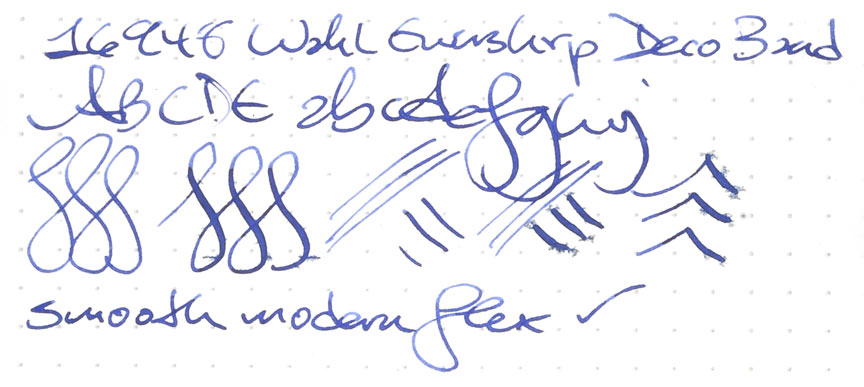 16948 Wahl Eversharp Deco Band
ABCDE abcdefghij
smooth modern flex ✓